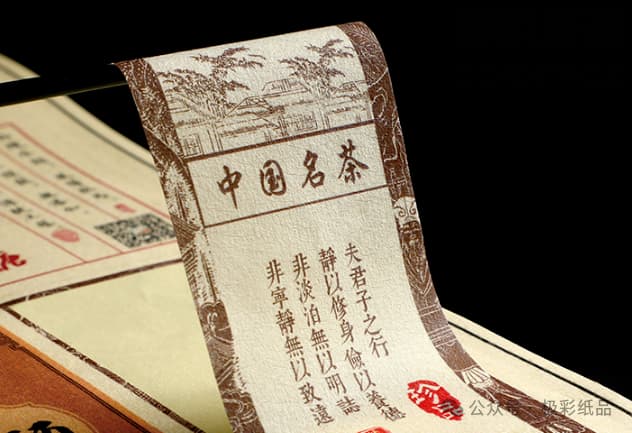 中国名茶
夫君子之行
靜以修身 儉以養德
非淡泊無以明誌
非寧靜無以致遠
珍
公众号 · 极彩纸品